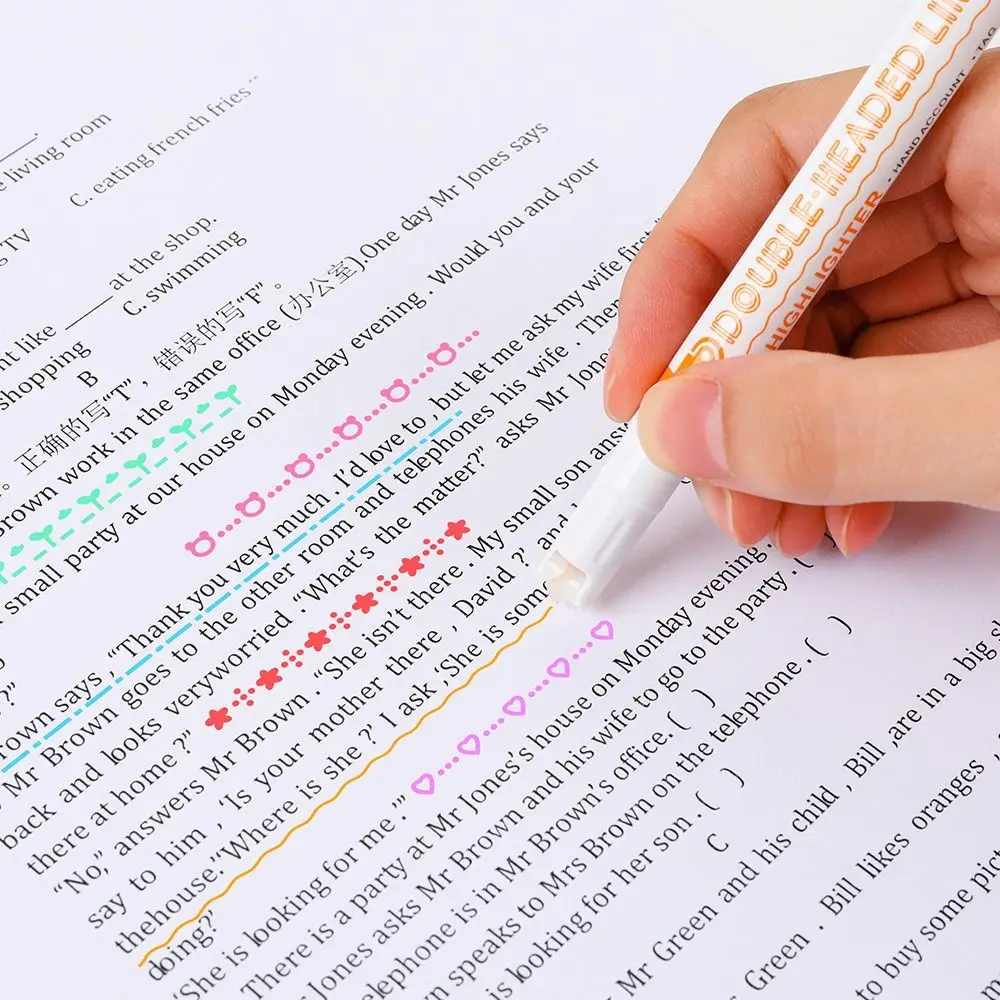 living room
C. eating french fries
TV
like ______ at the shop.
shopping
C. swimming
B
正确的写“T”，错误的写“F”。
work in the same office (办公室).One day Mr Jones says
small party at our house on Monday evening . Would you and your
?”
says , “Thank you very much . I'd love to , but let me ask my wife
Mr Brown goes to the other room and telephones his wife .
back and looks veryworried .“What's the matter?” asks Mr
there at home ?”
“No,” answers Mr Brown .“She isn't there . My small son
say to him ,‘Is your mother there , David ?’ and
thehouse.”Where is she ?’ I ask ,‘She is
doing?’
“She is looking for me .’”
There is a party at Mr Jones's house on Monday evening .
Jones asks Mr Brown and his wife to go to the party . (
is in Mr Brown's office. ( )
speaks to Mrs Brown on the telephone . ( )
is looking for her son . ( )
C
Mr Green and his child , Bill ,are in a big
Green . Bill likes oranges ,
to buy some
DOUBLE·HEADED
HIGHLIGHTER
· HAND ACCOUNT · TAG